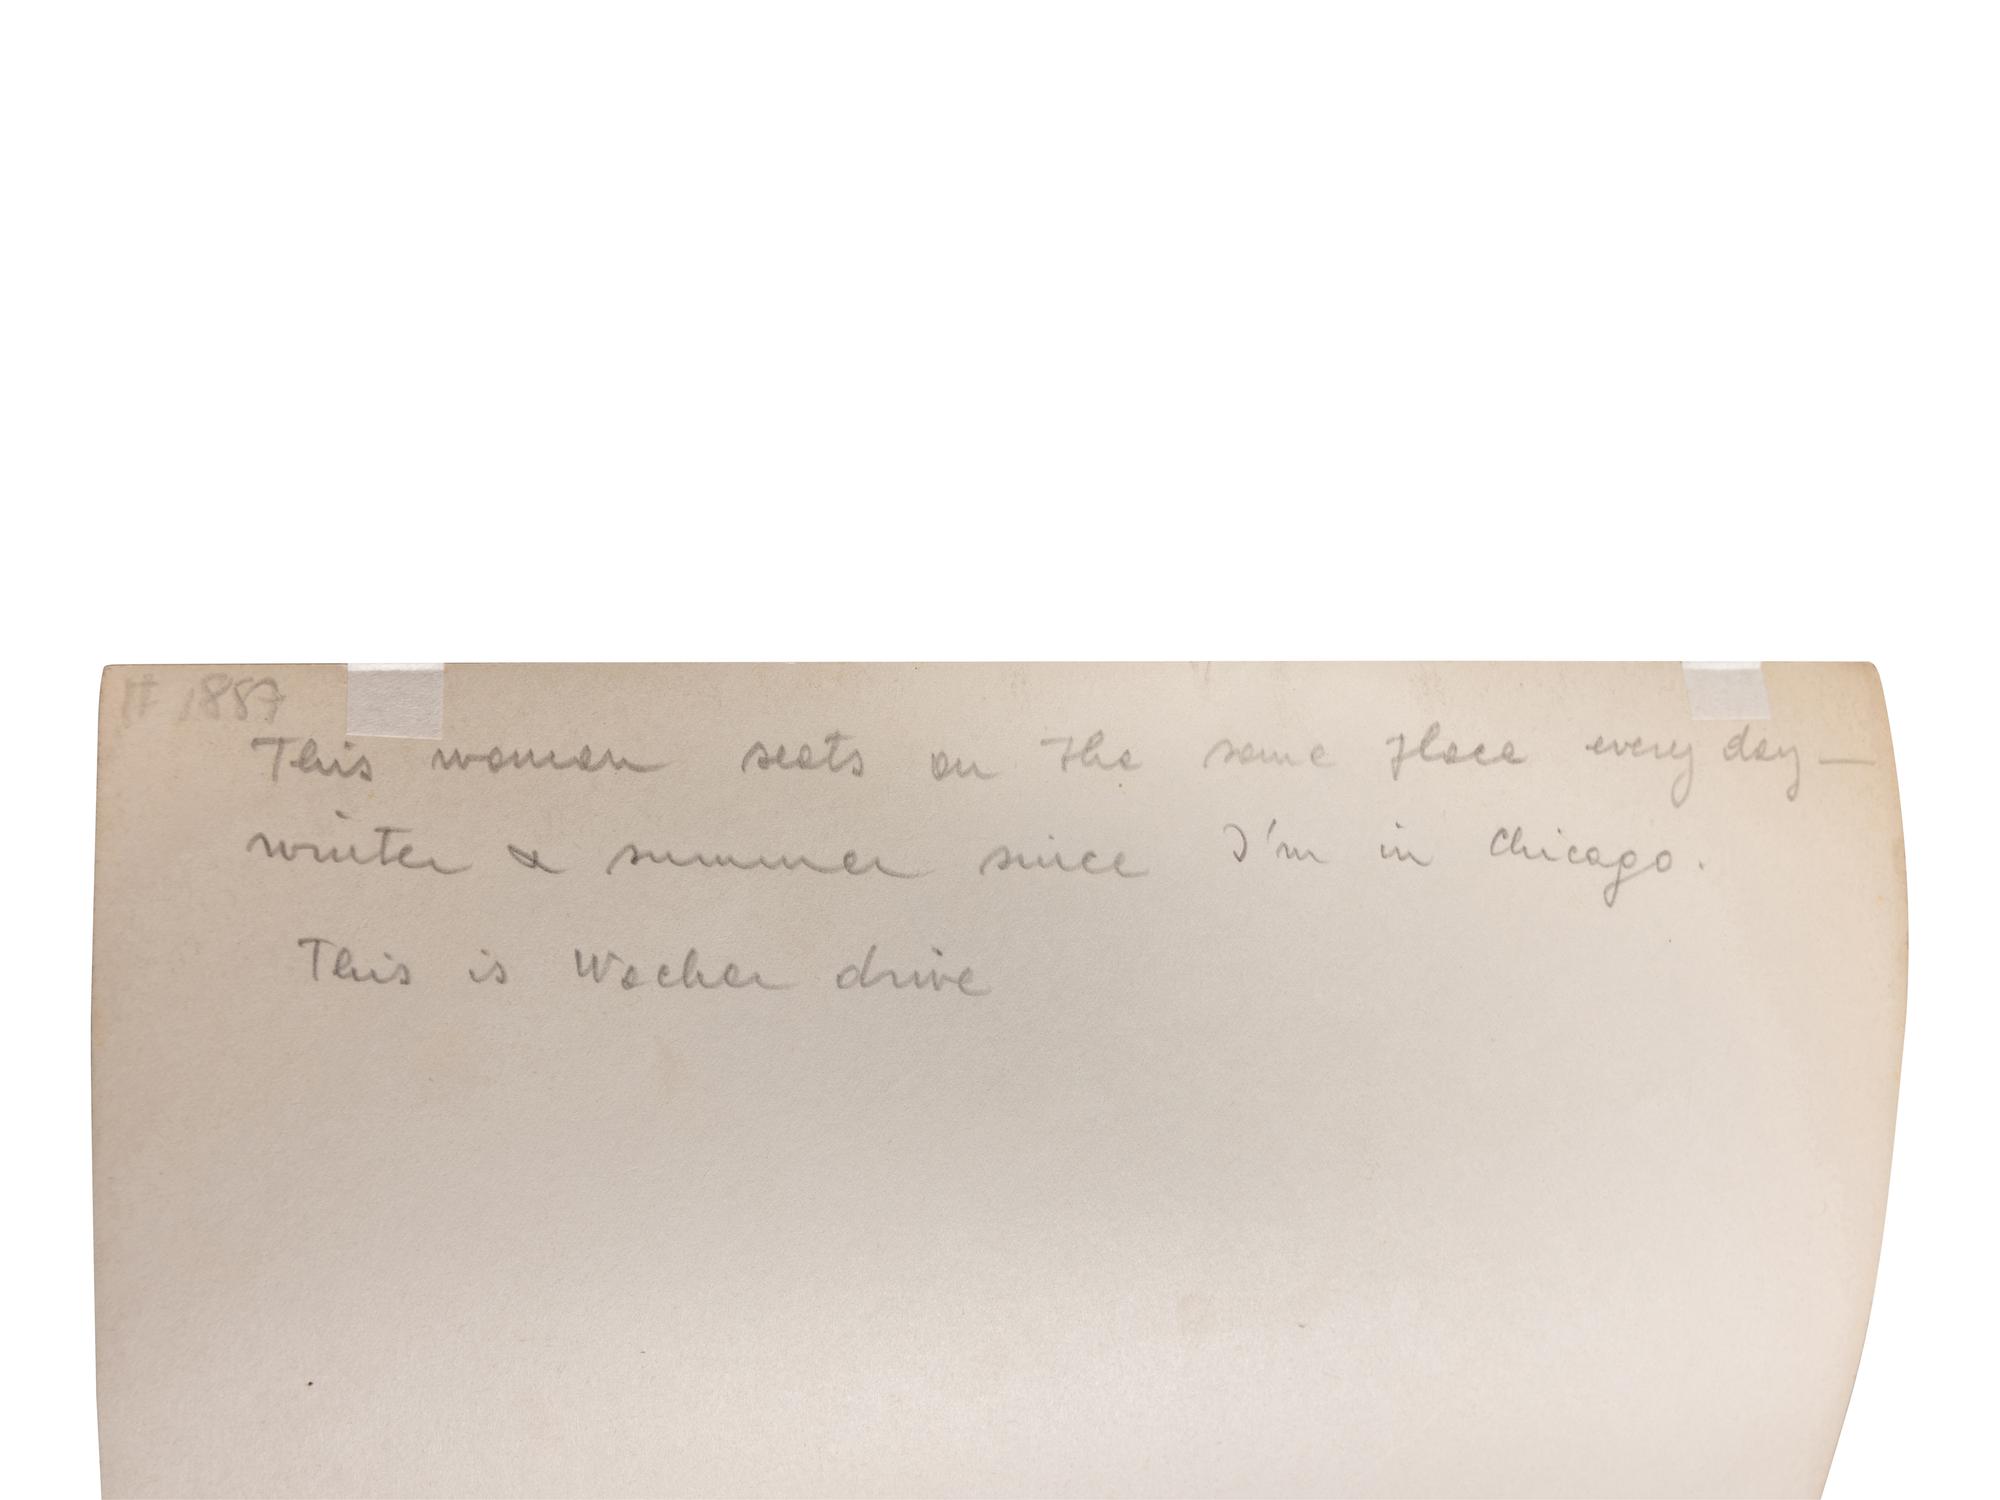 # 1887
This woman seats on the same place every day —
winter & summer since I'm in Chicago.
This is Wacker drive